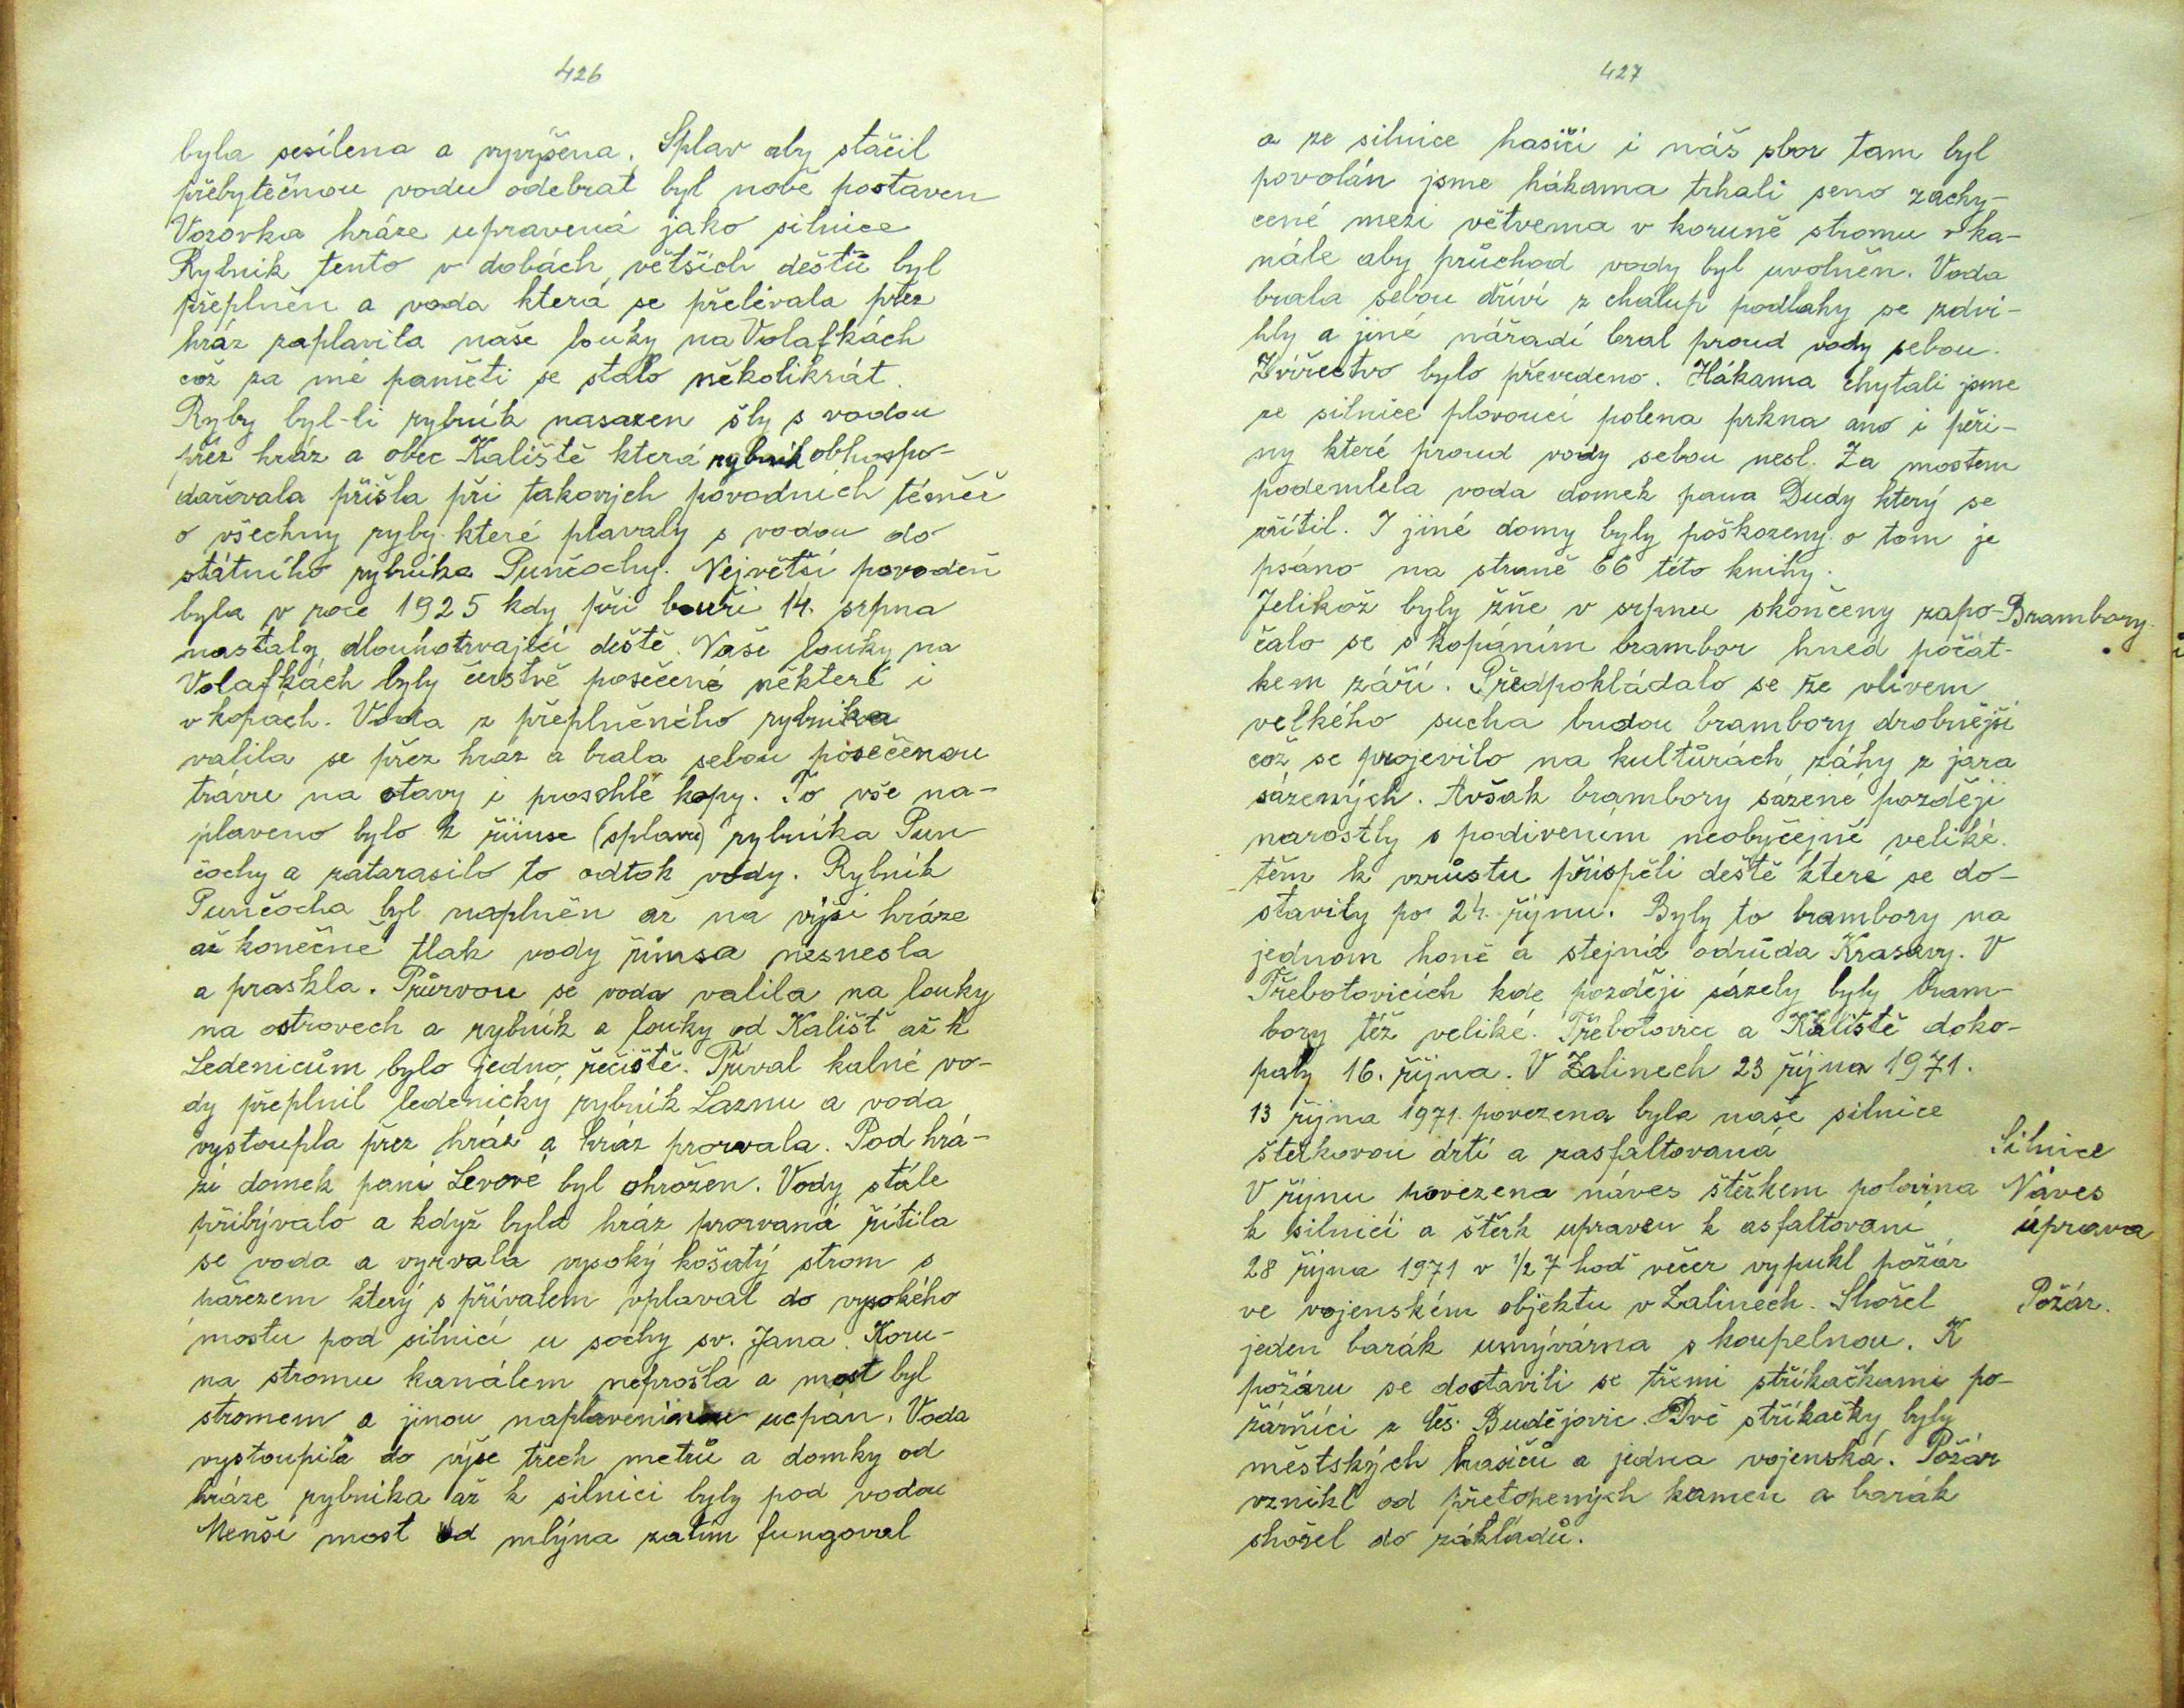 426
byla sesílena a vyvýšena. Splav aby stačil
přebytečnou vodu odebrat byl nově postaven
Vozovka hráze upravená jako silnice
Rybník tento v dobách větších deštů byl
přeplněn a voda která se přelévala přez
hráz zaplavila naše louky na Volafkách
což za mé paměti se stalo několikrát.
Ryby byl-li rybník nasazen šly s vodou
přez hráz a obec Kaliště která rybník obhospo-
dařovala přišla při takových povodních téměř
o všechny ryby které plavaly s vodou do
státního rybníka Punčochy. Největší povodeň
byla v roce 1925 kdy při bouři 14. srpna
nastaly dlouhotrvající deště. Naše louky na
Volafkách byly čerstvě posečené některé i
v kopách. Voda z přeplněného rybníka
valila se přez hráz a brala sebou posečenou
trávu na otavy i proschlé kopy. To vše na-
plaveno bylo k římse (splavu) rybníka Pun
čochy a zatarasilo to odtok vody. Rybník
Punčocha byl naplněn až na výši hráze
až konečně tlak vody římsa nesnesla
a praskla. Průrvou se voda valila na louky
na ostrovech a rybník a louky od Kališť až k
Ledenicům bylo jedno řečiště. Příval kalné vo-
dy přeplnil ledenický rybník Laznu a voda
vystoupla přez hráz a hráz prorvala. Pod hrá-
zí domek paní Levové byl ohrožen. Vody stále
přibývalo a když byla hráz prorvaná řítila
se voda a vyrvala vysoký košatý strom s
pařezem který s přívalem vplaval do vysokého
mostu pod silnicí u sochy sv. Jana. Koru-
na stromu kanálem neprošla a most byl
stromem a jinou naplaveninou ucpán. Voda
vystoupila do výše třech metrů a domky od
hráze rybníka až k silnici byly pod vodou
Menší most od mlýna zatím fungoval
427
a ze silnice hasiči i náš sbor tam byl
povolán jsme hákama trhali seno zachy-
cené mezi větvema v koruně stromu v ka-
nále aby průchod vody byl uvolněn. Voda
brala sebou dříví z chalup podlahy se zdvi-
hly a jiné nářadí bral proud vody sebou.
Zvířectvo bylo převedeno. Hákama chytali jsme
ze silnice plovoucí polena prkna ano i peři-
ny které proud vody sebou nesl. Za mostem
podemlela voda domek pana Dudy který se
zřítil. I jiné domy byly poškozeny o tom je
psáno na straně 66 této knihy.
Jelikož byly žně v srpnu skončeny zapo- Brambory.
čalo se s kopáním brambor hned počát-
kem září. Předpokládalo se že vlivem
velkého sucha budou brambory drobnější
což se projevilo na kultůrách záhy z jara
sázených. Avšak brambory sázené později
narostly s podivením neobyčejně veliké.
těm k vzrůstu přispěli deště které se do-
stavily po 24. říjnu. Byly to brambory na
jednom honě a stejná odrůda Krasavy. V
Třebotovicích kde později sázely byly bram-
bory též veliké. Třebotovice a Kaliště doko-
paly 16. října. V Zalinech 23 října 1971.
13 října 1971. povezena byla naše silnice
šterkovou drtí a zasfaltovaná Silnice
V říjnu povezena náves štěrkem polovina Náves
k silnici a štěrk upraven k asfaltovaní úprava
28 října 1971 v 1/2 7 hod večer vypukl požár
ve vojenském objektu v Zalinech. Shořel Požár.
jeden barák umývárna s koupelnou. K
požáru se dostavili se třemi stříkačkami po-
žárníci z Čes. Budějovic. Dvě stříkačky byly
městských hasičů a jedna vojenská. Požár
vznikl od přetopených kamen a barák
shořel do základů.